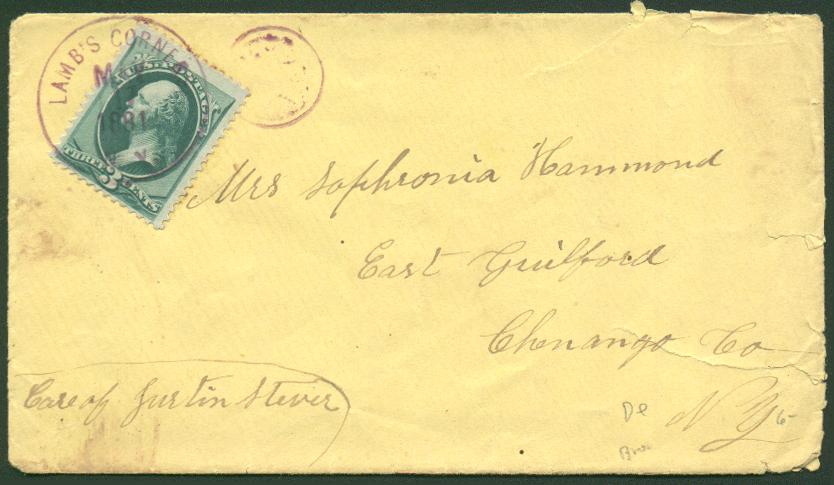 LAMB'S CORNERS
1881
N.Y.
U.S. POSTAGE
THREE 3 CENTS
Mrs Sophronia Hammond
East Guilford
Chenango Co
N Y
Care of Justin Stever
De